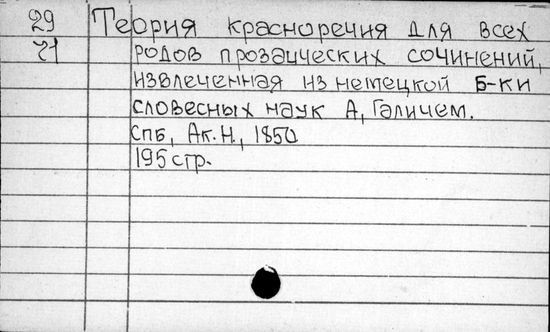 29 Теория красноречия для всех
71 родов прозаических сочинений,
извлеченная из немецкой Б-ки
словесных наук А, Галичем.
Спб, Ак.Н., 1850
195 стр.